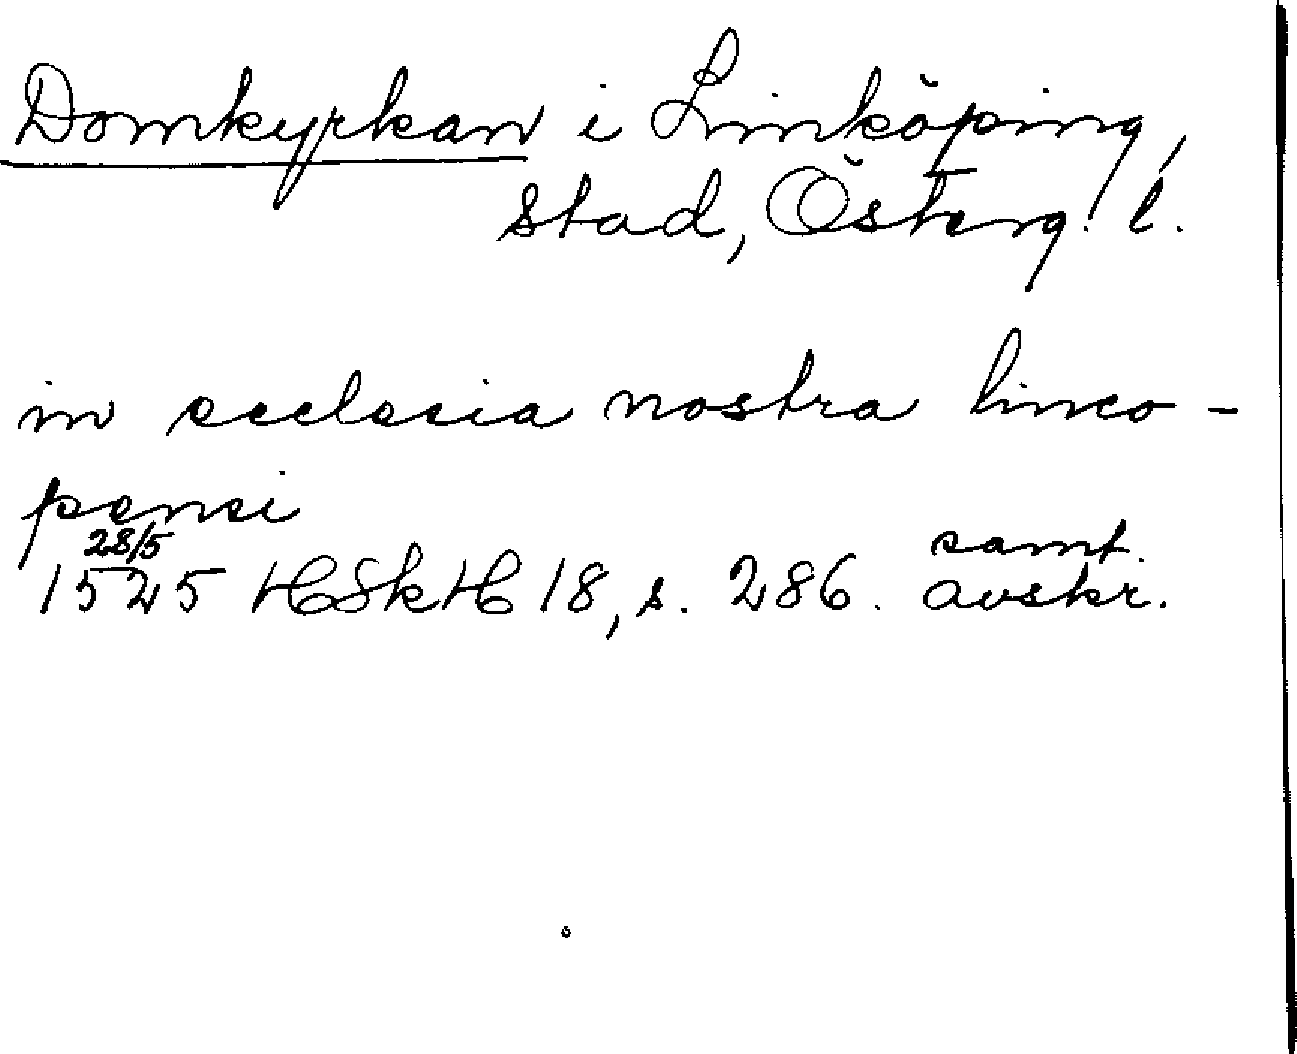 Domkyrkan i Linköping,
stad, Österg. l.
in ecclesia nostra linco-
pensi
28/5 samt.
1525 HSkH 18, s. 286. avskr.